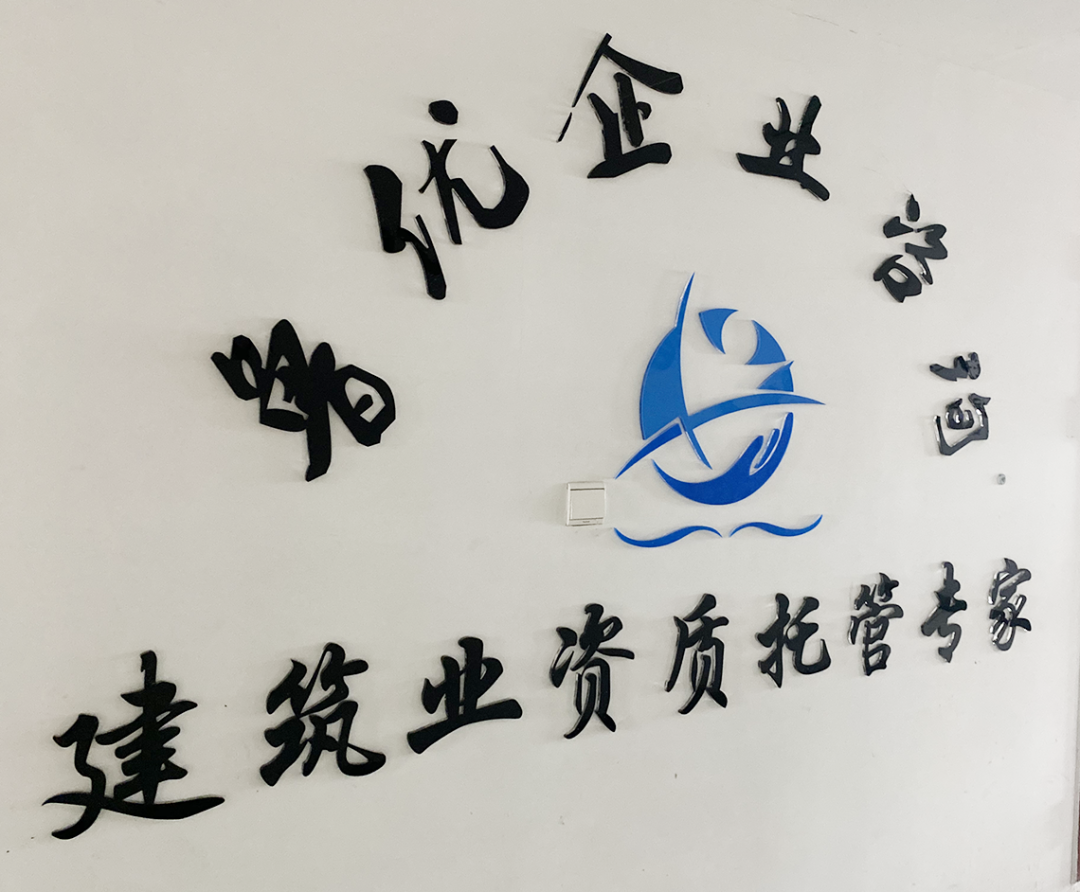 睿优企业咨询
建筑业资质托管专家